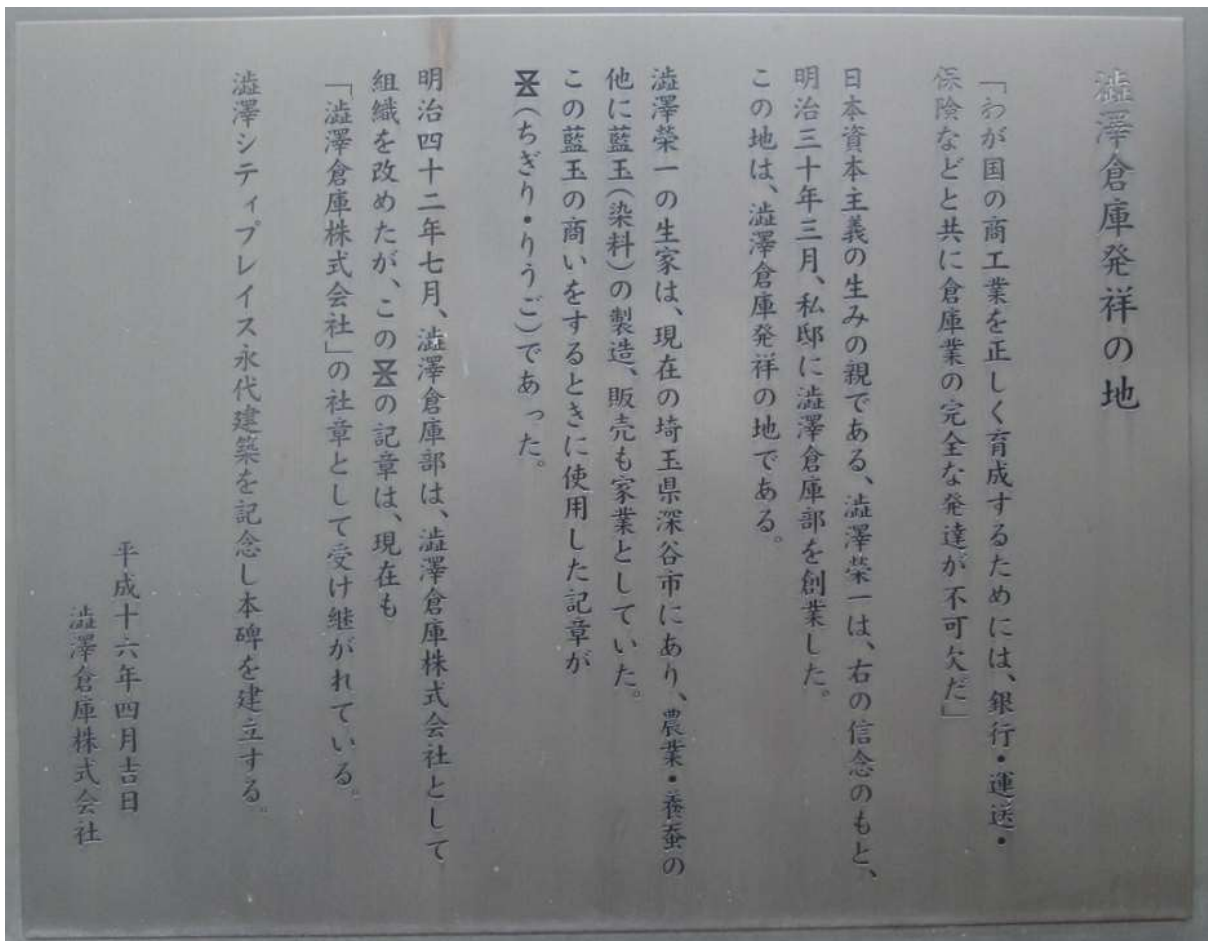 澁澤倉庫発祥の地
「わが国の商工業を正しく育成するためには、銀行・運送・
保険などと共に倉庫業の完全な発達が不可欠だ」
日本資本主義の生みの親である、澁澤榮一は、右の信念のもと、
明治三十年三月、私邸に澁澤倉庫部を創業した。
この地は、澁澤倉庫発祥の地である。
澁澤榮一の生家は、現在の埼玉県深谷市にあり、農業・養蚕の
他に藍玉(染料)の製造、販売も家業としていた。
この藍玉の商いをするときに使用した記章が
(ちぎり・りうご)であった。
明治四十二年七月、澁澤倉庫部は、澁澤倉庫株式会社として
組織を改めたが、この の記章は、現在も
「澁澤倉庫株式会社」の社章として受け継がれている。
澁澤シティプレイス永代建築を記念し本碑を建立する。
平成十六年四月吉日
澁澤倉庫株式会社